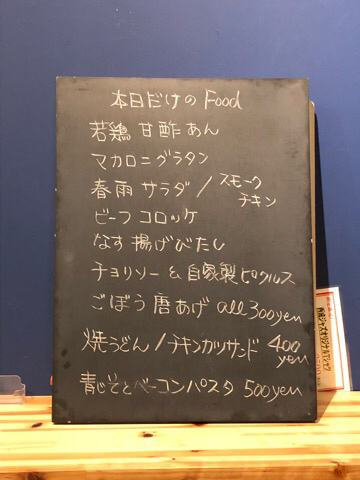 本日だけの Food
若鶏 甘酢あん
マカロニグラタン
春雨 サラダ / スモークチキン
ビーフ コロッケ
なす 揚げびたし
チョリソー & 自家製ピクルス
ごぼう 唐あげ all 300yen
焼うどん / チキンカツサンド 400yen
青じそとベーコンパスタ 500yen